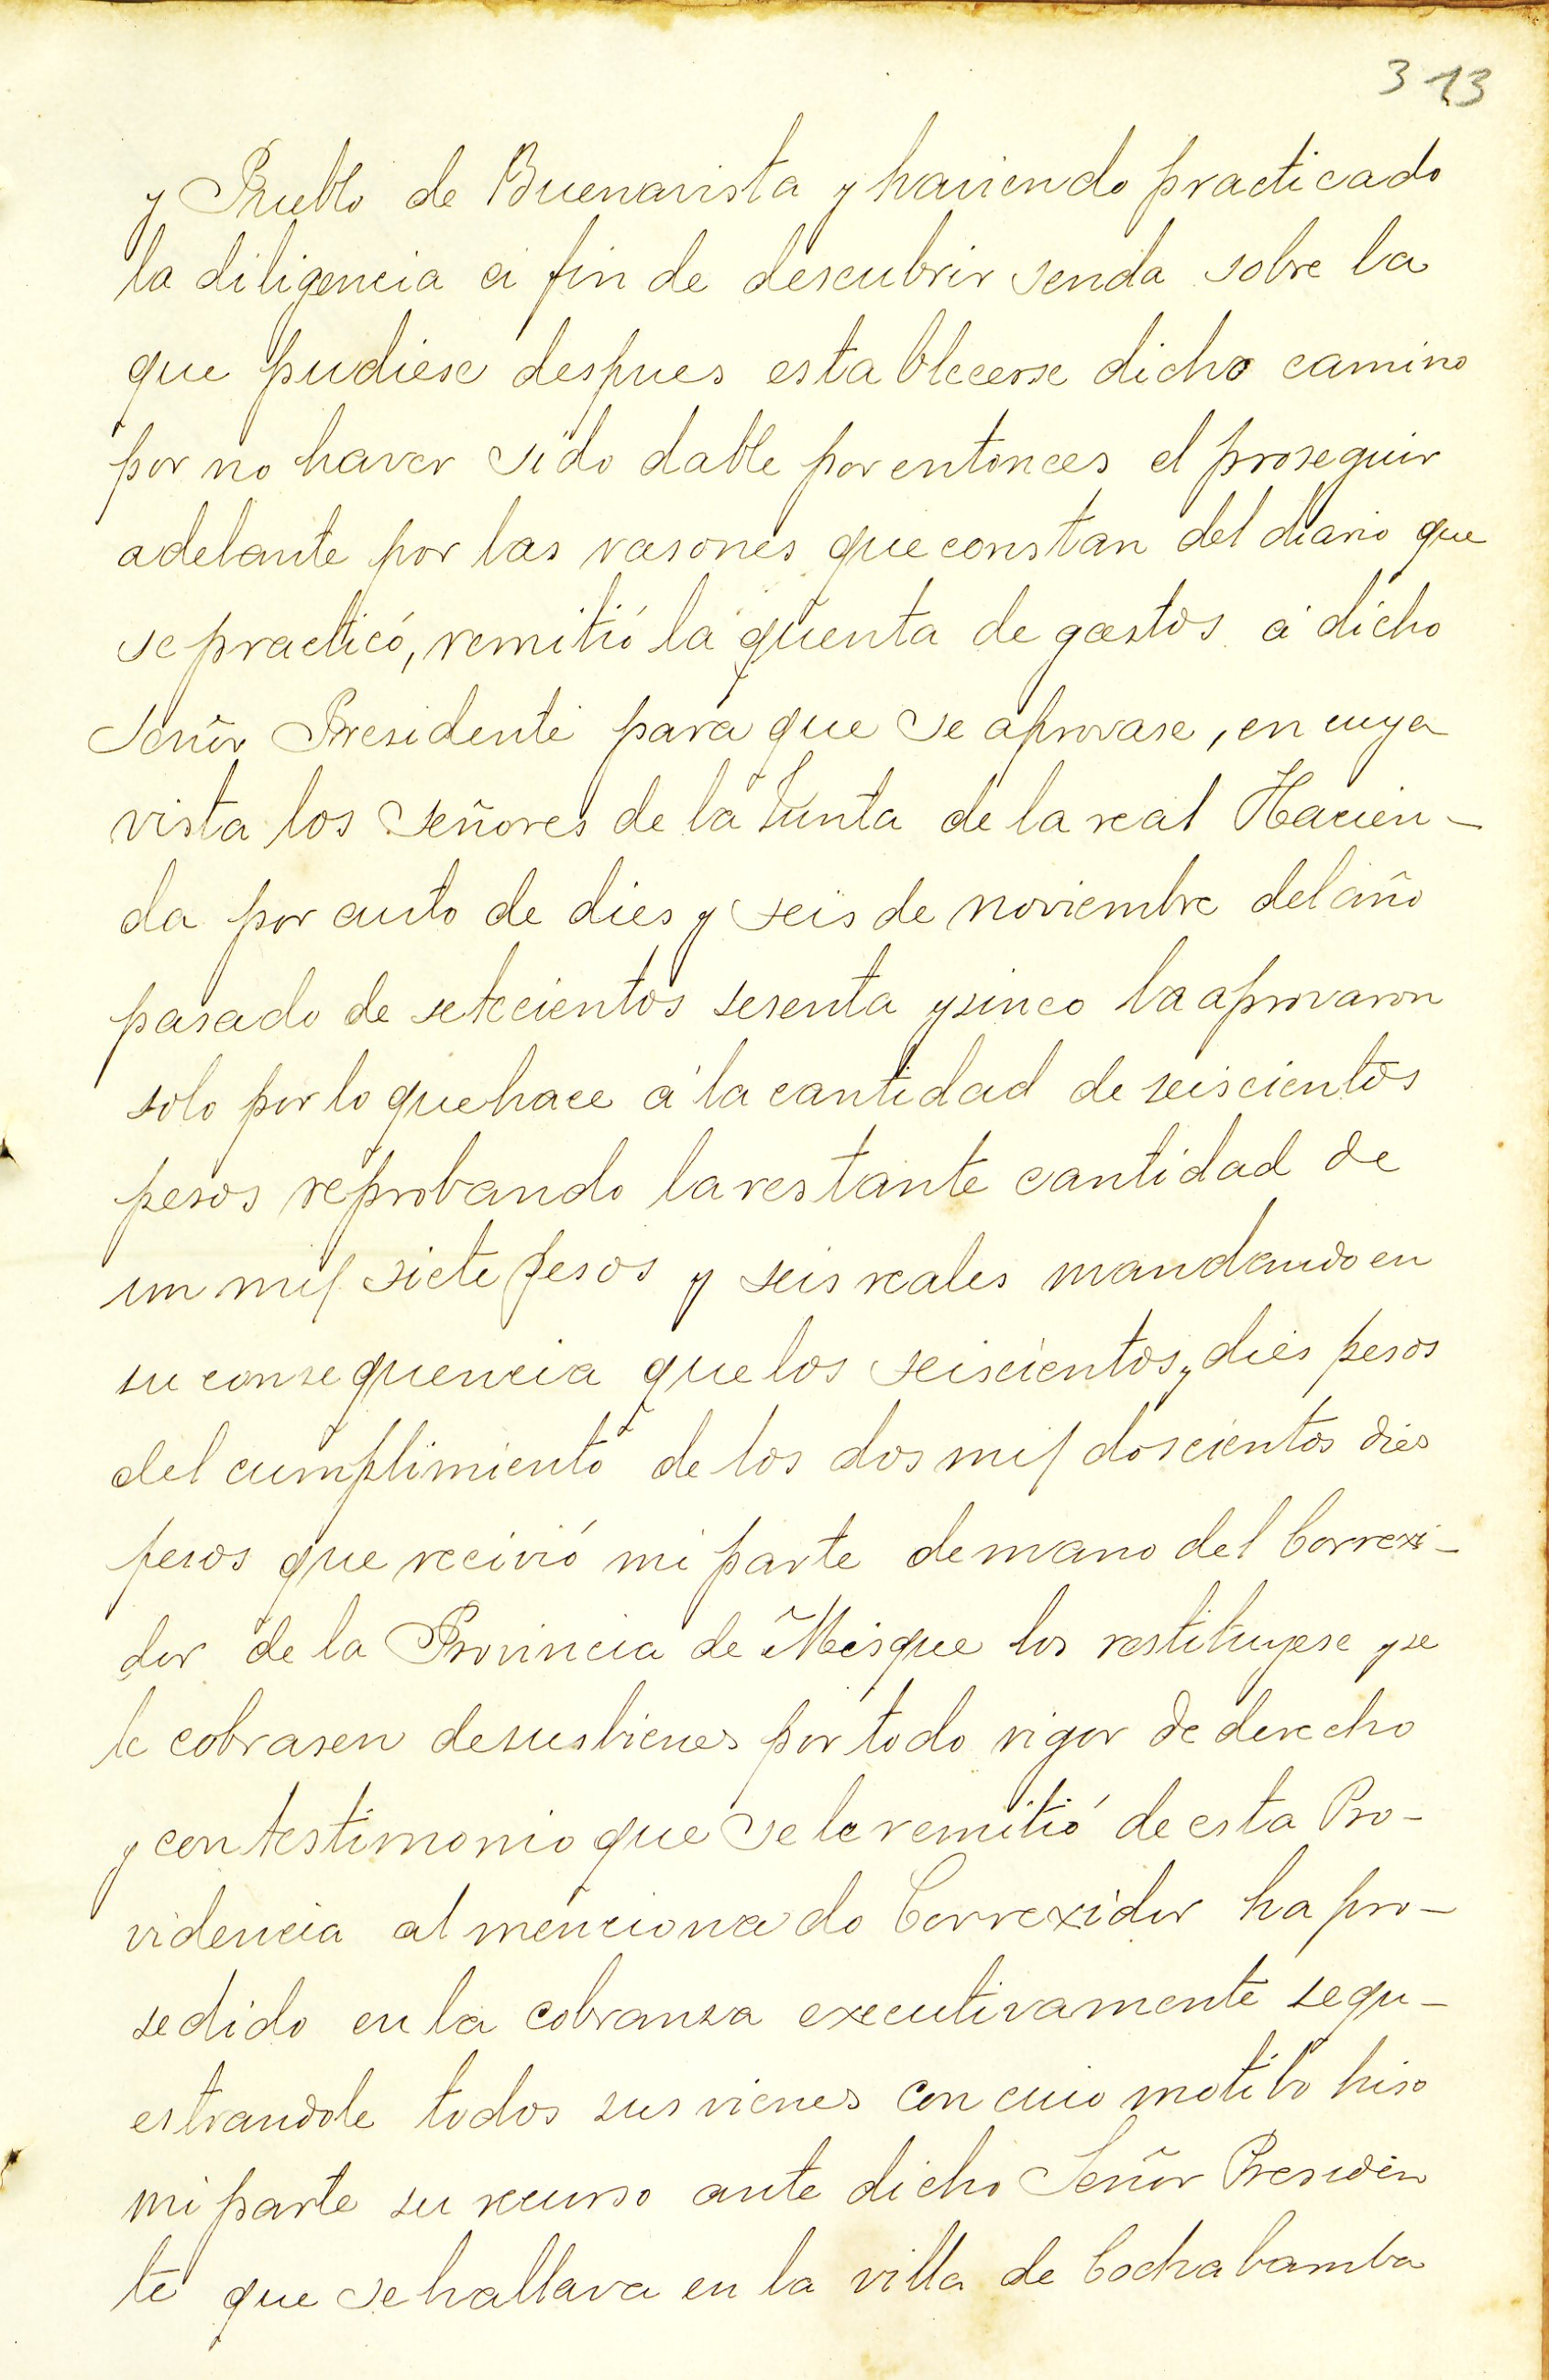 313
y Pueblo de Buenavista y haviendo practicado
la diligencia a fin de descubrir senda sobre la
que pudiese despues establecerse dicho camino
por no haver sido dable por entonces el proseguir
adelante por las rasones que constan del diario que
se practicó, remitió la quenta de gastos á dicho
Señor Presidente para que se aprovase, en cuya
vista los Señores de la Junta de la real Hacien-
da por auto de dies y seis de noviembre del año
pasado de setecientos sesenta y sinco la aprovaron
solo por lo que hace á la cantidad de seiscientos
pesos reprobando la restante cantidad de
un mil siete pesos y seis reales mandando en
su consequencia que los seiscientos y dies pesos
del cumplimiento de los dos mil doscientos dies
pesos que recivió mi parte de mano del Correxi-
dor de la Provincia de Misque los restituyese y se
le cobrasen de sus bienes por todo rigor de derecho
y con testimonio que se le remitió de esta Pro-
videncia al mencionado Correxidor ha pro-
sedido en la cobransa executivamente sequ-
estrandole todos sus vienes con cuio motibo hiso
mi parte su recurso ante dicho Señor Presiden
te que se hallava en la villa de Cochabamba